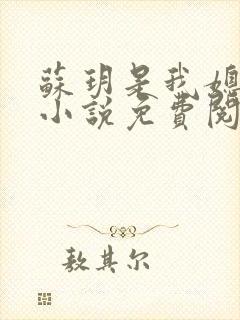 蘇玥是我媳
小說免費閱
敖其尔